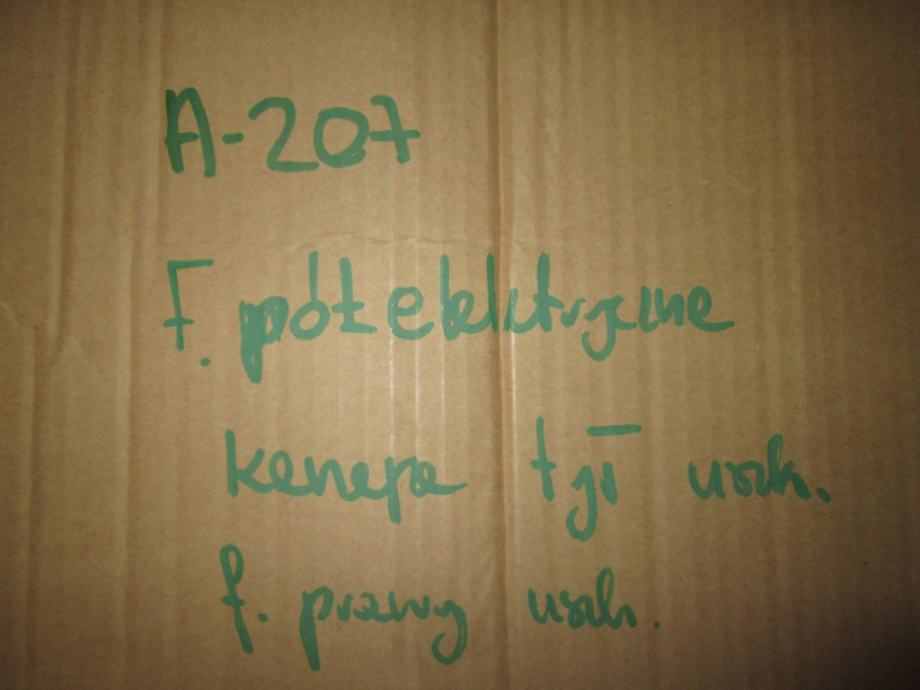 A-207
F. półelektryczne
kanapa tył uszk.
f. prawy uszk.